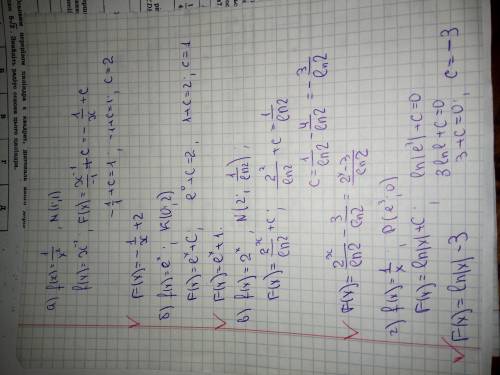 а) f(x)=1/x², N(1;1)
f(x)=x⁻² F(x)=x⁻¹/-1+C=-1/x+C
-1/1+C=1, -1+C=1, C=2
F(x)=-1/x+2
б) f(x)=eˣ, K(0;2)
F(x)=eˣ+C, e⁰+C=2, 1+C=2, C=1
F(x)=eˣ+1.
в) f(x)=2ˣ, N(2; 1/ln2),
F(x)=2ˣ/ln2+C. 2²/ln2+C=1/ln2
C=1/ln2-4/ln2=-3/ln2
F(x)=2ˣ/ln2-3/ln2=2ˣ-3/ln2
г) f(x)=1/x, P(e³;0)
F(x)=ln|x|+C. ln|e³|+C=0
3lne+C=0
3+C=0, C=-3
F(x)=ln|x|-3